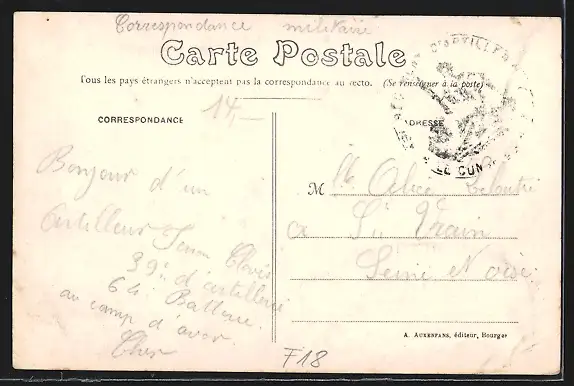 Correspondance militaire
Carte Postale
Tous les pays étrangers n'acceptent pas la correspondance au recto. (Se renseigner à la poste)
14,—
CORRESPONDANCE
ADRESSE
Bonjour d'un
artilleur Clovis
39e d'artillerie
64 Batterie
au camp d'avor
Cher
M lle Alice
a St Vrain
Seine et oise
LE
A. AUXENFANS, éditeur, Bourges
F18